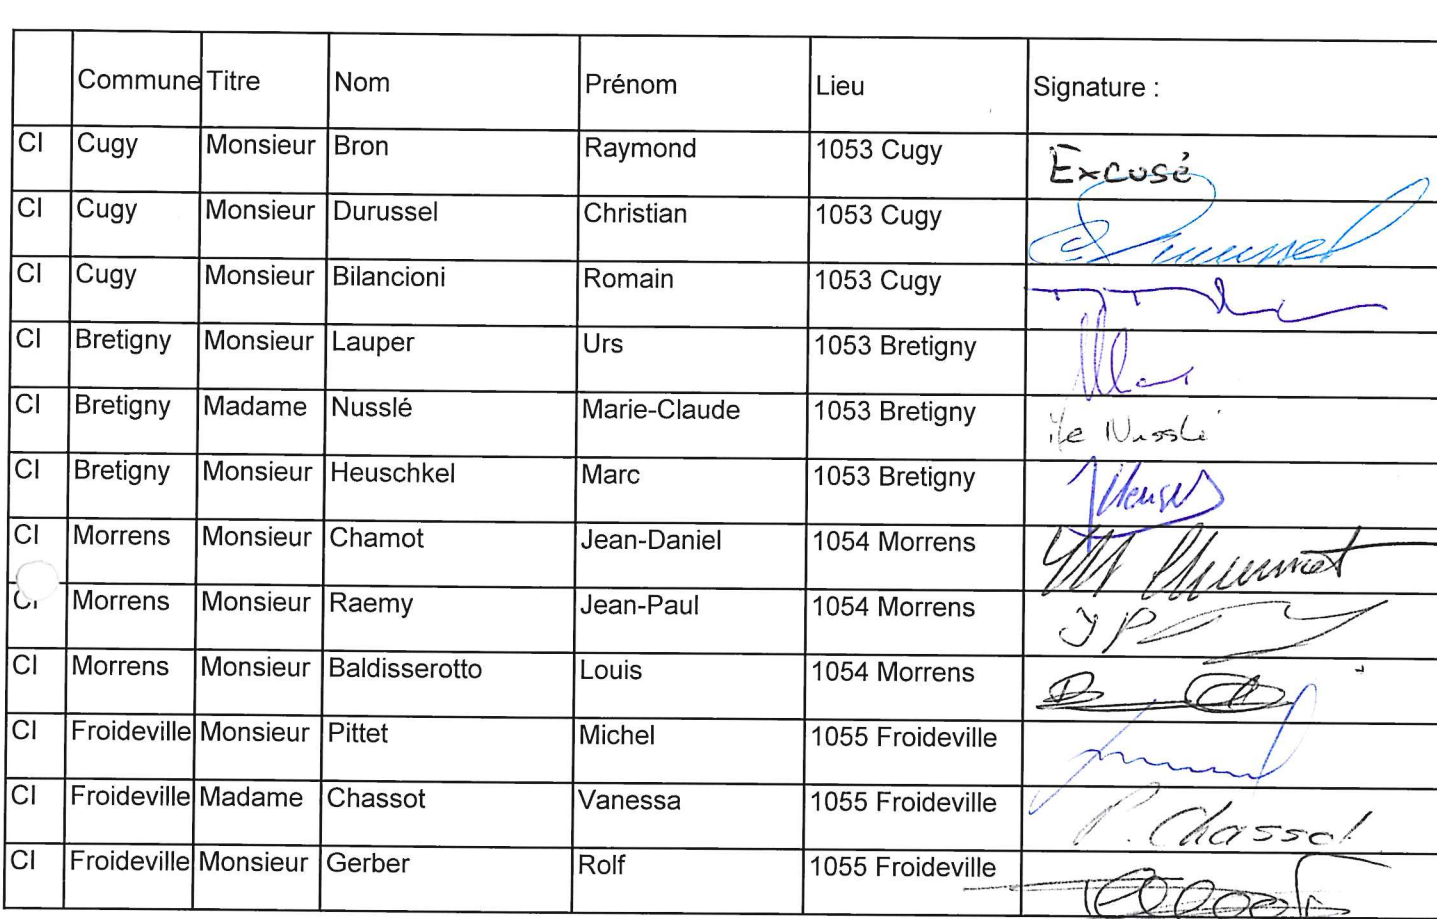 Commune Titre Nom Prénom Lieu Signature :
CI Cugy Monsieur Bron Raymond 1053 Cugy Excusé
CI Cugy Monsieur Durussel Christian 1053 Cugy
CI Cugy Monsieur Bilancioni Romain 1053 Cugy
CI Bretigny Monsieur Lauper Urs 1053 Bretigny
CI Bretigny Madame Nusslé Marie-Claude 1053 Bretigny Nusslé
CI Bretigny Monsieur Heuschkel Marc 1053 Bretigny
CI Morrens Monsieur Chamot Jean-Daniel 1054 Morrens
CI Morrens Monsieur Raemy Jean-Paul 1054 Morrens JP
CI Morrens Monsieur Baldisserotto Louis 1054 Morrens
CI Froideville Monsieur Pittet Michel 1055 Froideville
CI Froideville Madame Chassot Vanessa 1055 Froideville Chassot
CI Froideville Monsieur Gerber Rolf 1055 Froideville